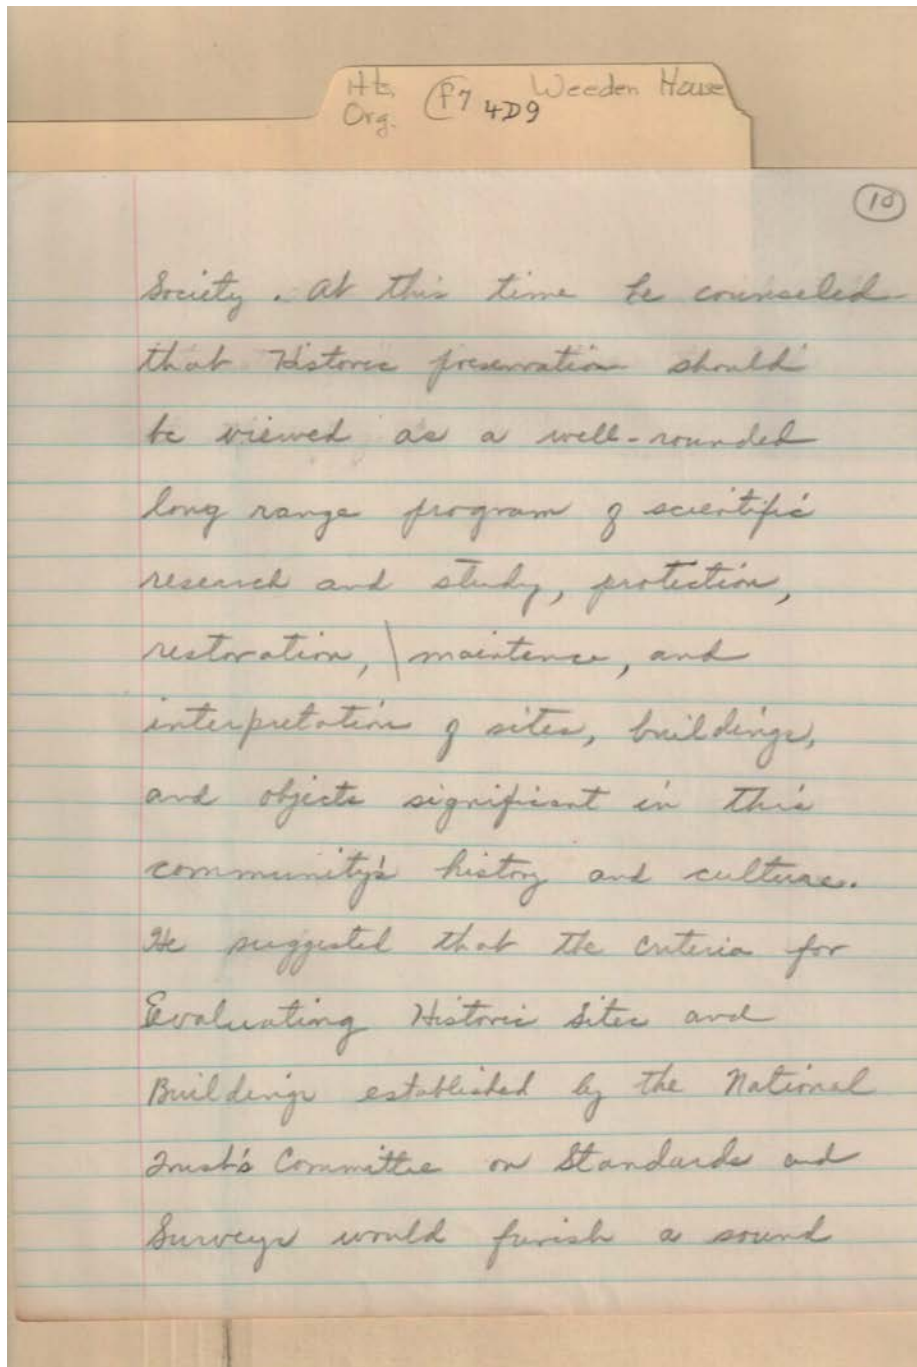 Hts. Weeden House
Org. F7 4D9
10
Society. At this time he counseled
that Historic preservation should
be viewed as a well-rounded
long range program of scientific
research and study, protection,
restoration, \ maintence, and
interpretation of sites, buildings,
and objects significant in this
community's history and culture.
He suggested that the criteria for
Evaluating Historic Sites and
Buildings established by the National
Trust's Committee on Standards and
Surveys would furish a sound